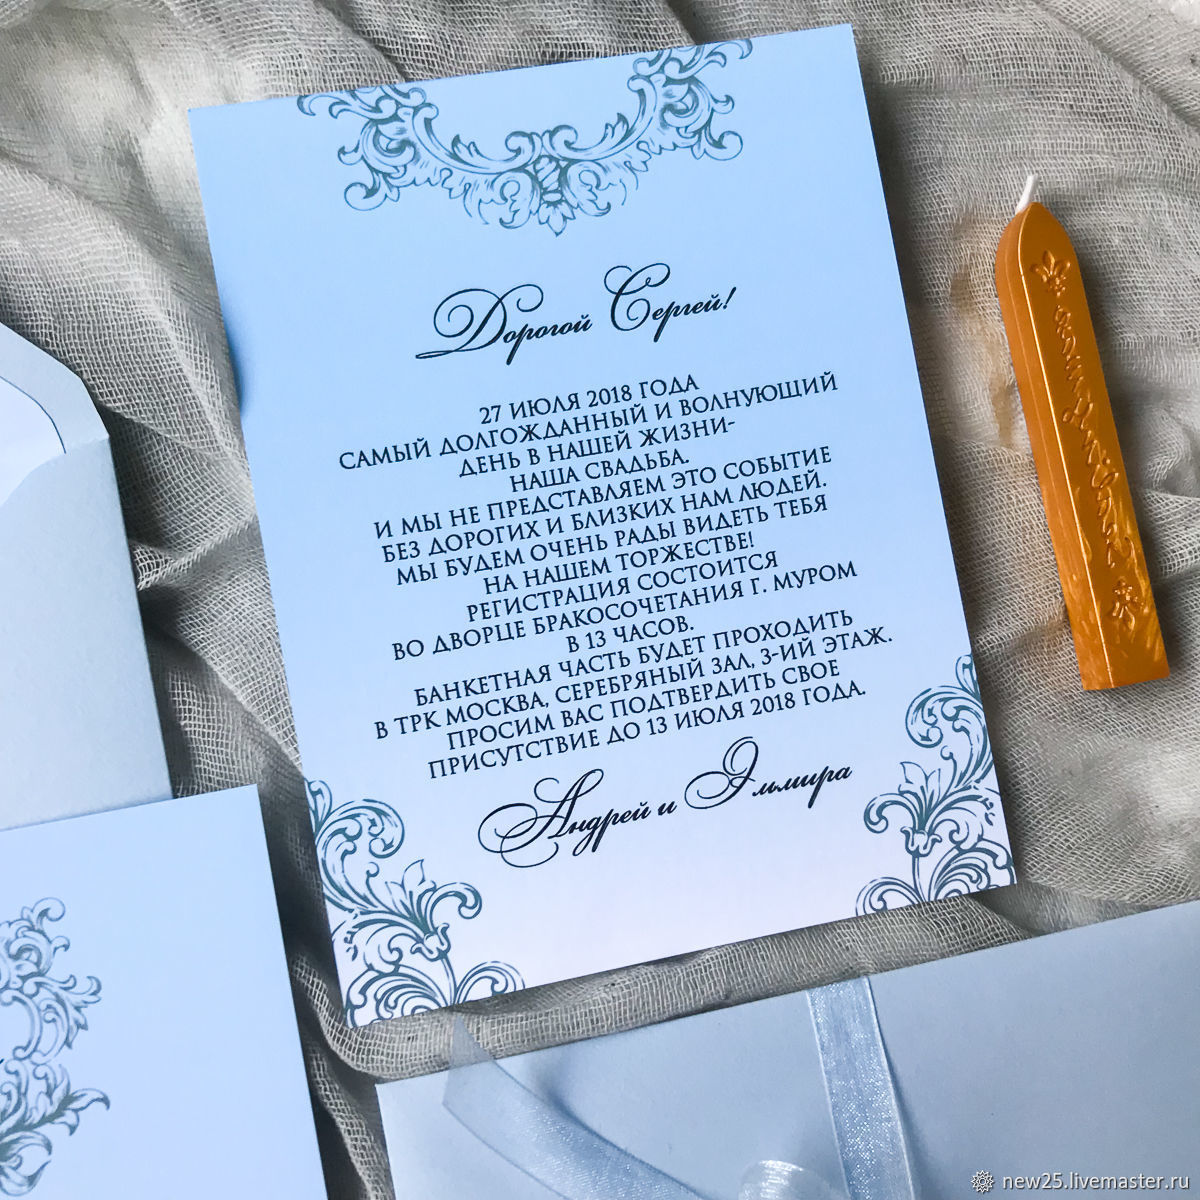 Дорогой Сергей!
27 ИЮЛЯ 2018 ГОДА
САМЫЙ ДОЛГОЖДАННЫЙ И ВОЛНУЮЩИЙ
ДЕНЬ В НАШЕЙ ЖИЗНИ-
НАША СВАДЬБА.
И МЫ НЕ ПРЕДСТАВЛЯЕМ ЭТО СОБЫТИЕ
БЕЗ ДОРОГИХ И БЛИЗКИХ НАМ ЛЮДЕЙ.
МЫ БУДЕМ ОЧЕНЬ РАДЫ ВИДЕТЬ ТЕБЯ
НА НАШЕМ ТОРЖЕСТВЕ!
РЕГИСТРАЦИЯ СОСТОИТСЯ
ВО ДВОРЦЕ БРАКОСОЧЕТАНИЯ Г. МУРОМ
В 13 ЧАСОВ.
БАНКЕТНАЯ ЧАСТЬ БУДЕТ ПРОХОДИТЬ
В ТРК МОСКВА, СЕРЕБРЯНЫЙ ЗАЛ, 3-ИЙ ЭТАЖ.
ПРОСИМ ВАС ПОДТВЕРДИТЬ СВОЕ
ПРИСУТСТВИЕ ДО 13 ИЮЛЯ 2018 ГОДА.
Андрей и Эльмира
new25.livemaster.ru